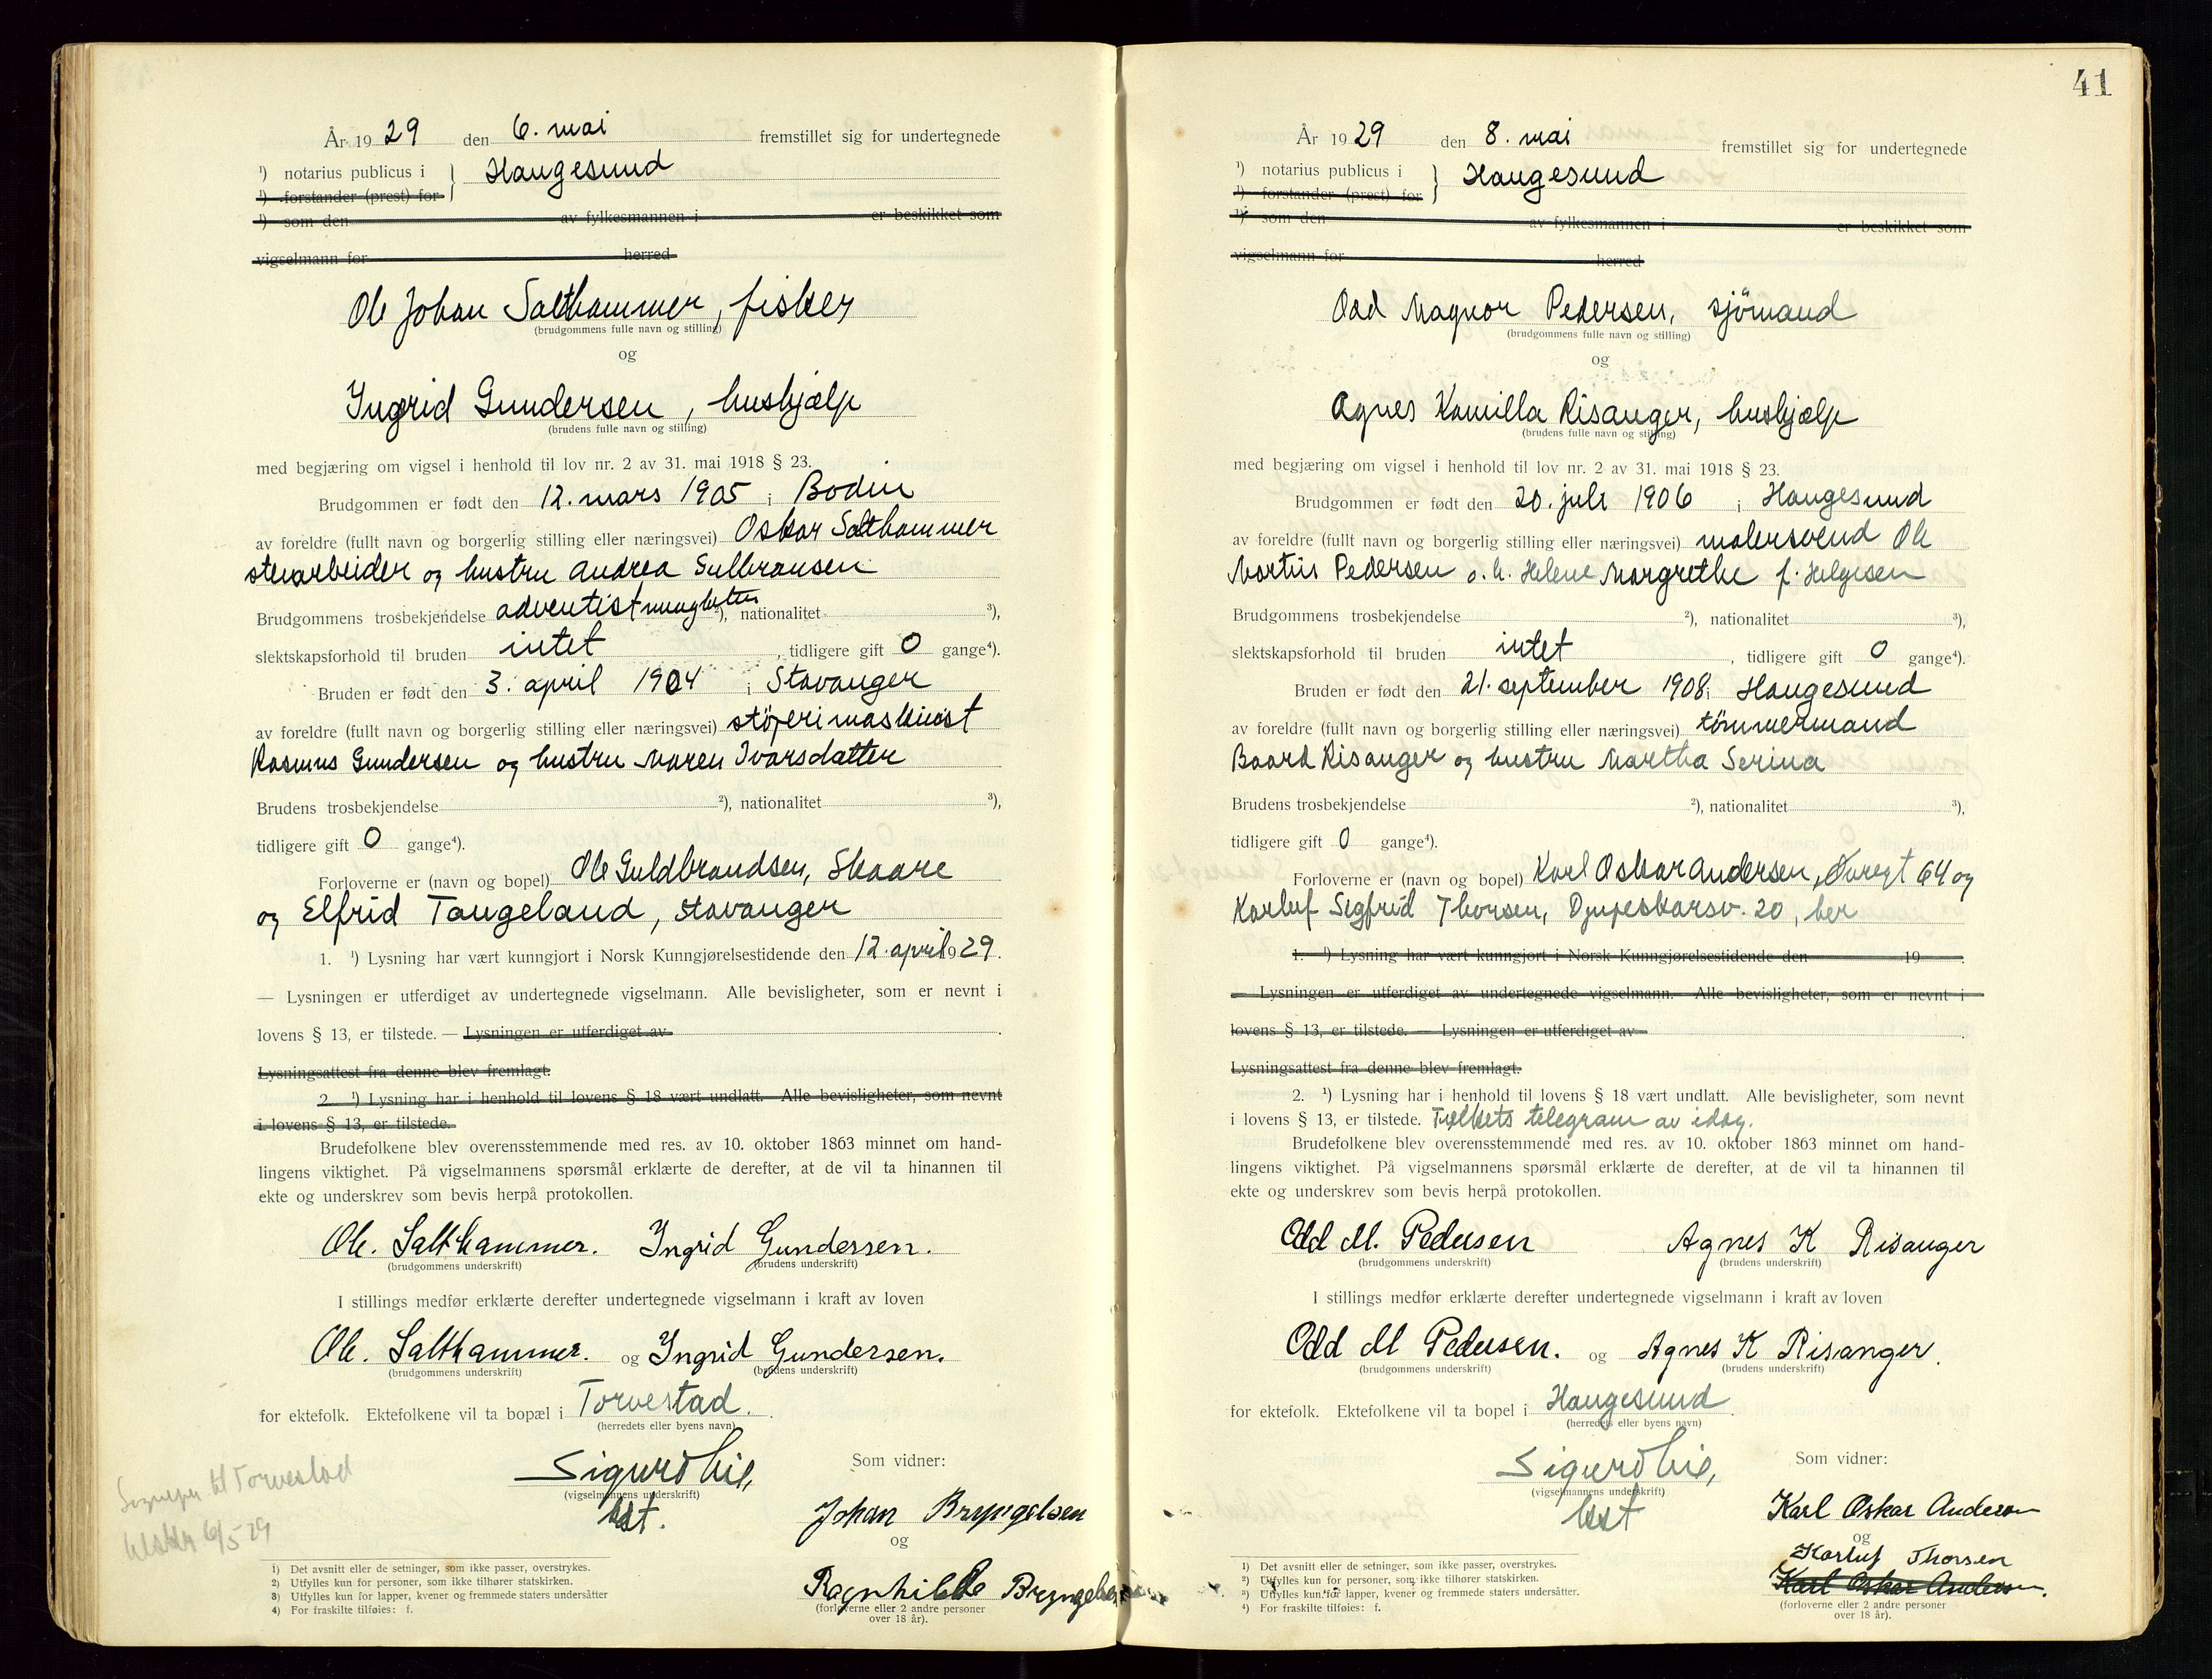 År 1929 den 6. mai fremstillet sig for undertegnede
¹) notarius publicus i } Haugesund
¹) forstander (prest) for
¹) som den av fylkesmannen i er beskikket som
vigselmann for herred
Ole Johan Salthammer, fisker
(brudgommens fulle navn og stilling)
og
Ingrid Gundersen, hushjælp
(brudens fulle navn og stilling)
med begjæring om vigsel i henhold til lov nr. 2 av 31. mai 1918 § 23.
Brudgommen er født den 12. mars 1905 i Bodin
av foreldre (fullt navn og borgerlig stilling eller næringsvei) Oskar Salthammer
stenarbeider og hustru Andrea Gulbransen
Brudgommens trosbekjendelse adventistmenigheten ²), nationalitet ³),
slektskapsforhold til bruden intet, tidligere gift 0 gange⁴).
Bruden er født den 3. april 1904 i Stavanger
av foreldre (fullt navn og borgerlig stilling eller næringsvei) støperimaskinist
Rasmus Gundersen og hustru Maren Ivarsdatter
Brudens trosbekjendelse ²), nationalitet ³),
tidligere gift 0 gange⁴).
Forloverne er (navn og bopel) Ole Guldbrandsen, Skaare
og Elfrid Tangeland, Stavanger
1. ¹) Lysning har vært kunngjort i Norsk Kunngjørelsestidende den 12. april 1929.
— Lysningen er utferdiget av undertegnede vigselmann. Alle bevisligheter, som er nevnt i
lovens § 13, er tilstede. — Lysningen er utferdiget av
Lysningsattest fra denne blev fremlagt.
2. ¹) Lysning har i henhold til lovens § 18 vært undlatt. Alle bevisligheter, som nevnt
i lovens § 13, er tilstede.
Brudefolkene blev overensstemmende med res. av 10. oktober 1863 minnet om hand-
lingens viktighet. På vigselmannens spørsmål erklærte de derefter, at de vil ta hinannen til
ekte og underskrev som bevis herpå protokollen.
Ole. Salthammer. Ingrid Gundersen.
(brudgommens underskrift) (brudens underskrift)
I stillings medfør erklærte derefter undertegnede vigselmann i kraft av loven
Ole. Salthammer. og Ingrid Gundersen.
(brudgommens underskrift) (brudens underskrift)
for ektefolk. Ektefolkene vil ta bopæl i Torvestad.
(herredets eller byens navn)
Sigurd Lie,
(vigselmannens underskrift)
Som vidner:
Johan Bryngelsen
og
Ragnhilde Bryngelsen
(forloverne eller 2 andre personer
over 18 år).
til Torvestad
6/5 29
1) Det avsnitt eller de setninger, som ikke passer, overstrykes.
2) Utfylles kun for personer, som ikke tilhører statskirken.
3) Utfylles kun for lapper, kvener og fremmede staters undersåtter
4) For fraskilte tilføies: f.
41
År 1929 den 8. mai fremstillet sig for undertegnede
¹) notarius publicus i } Haugesund
¹) forstander (prest) for
¹) som den av fylkesmannen i er beskikket som
vigselmann for herred
Odd Magnor Pedersen, sjömand
(brudgommens fulle navn og stilling)
og
Agnes Kamilla Risanger, hushjælp
(brudens fulle navn og stilling)
med begjæring om vigsel i henhold til lov nr. 2 av 31. mai 1918 § 23.
Brudgommen er født den 20. juli 1906 i Haugesund
av foreldre (fullt navn og borgerlig stilling eller næringsvei) malersvend Ole
Martin Pedersen o. h. Helene Margrethe f. Helgesen
Brudgommens trosbekjendelse ²), nationalitet ³),
slektskapsforhold til bruden intet, tidligere gift 0 gange⁴).
Bruden er født den 21. september 1908 i Haugesund
av foreldre (fullt navn og borgerlig stilling eller næringsvei) tömmermand
Baard Risanger og hustru Martha Serina
Brudens trosbekjendelse ²), nationalitet ³),
tidligere gift 0 gange⁴).
Forloverne er (navn og bopel) Karl Oskar Andersen, Øvregt 64 og
Karluf Segfrid Thorsen, Djupeskarsv. 20, her
1. ¹) Lysning har vært kunngjort i Norsk Kunngjørelsestidende den 19 .
— Lysningen er utferdiget av undertegnede vigselmann. Alle bevisligheter, som er nevnt i
lovens § 13, er tilstede. — Lysningen er utferdiget av .
Lysningsattest fra denne blev fremlagt.
2. ¹) Lysning har i henhold til lovens § 18 vært undlatt. Alle bevisligheter, som nevnt
i lovens § 13, er tilstede. Fylkets telegram av idag.
Brudefolkene blev overensstemmende med res. av 10. oktober 1863 minnet om hand-
lingens viktighet. På vigselmannens spørsmål erklærte de derefter, at de vil ta hinannen til
ekte og underskrev som bevis herpå protokollen.
Odd M. Pedersen Agnes K Risanger
(brudgommens underskrift) (brudens underskrift)
I stillings medfør erklærte derefter undertegnede vigselmann i kraft av loven
Odd M Pedersen. og Agnes K Risanger.
(brudgommens underskrift) (brudens underskrift)
for ektefolk. Ektefolkene vil ta bopel i Haugesund.
(herredets eller byens navn)
Sigurd Lie,
(vigselmannens underskrift)
Som vidner:
Karl Oskar Andersen
og
Karluf Thorsen
Karl Oskar Andersen.
(forloverne eller 2 andre personer
over 18 år).
1) Det avsnitt eller de setninger, som ikke passer, overstrykes.
2) Utfylles kun for personer, som ikke tilhører statskirken.
3) Utfylles kun for lapper, kvener og fremmede staters undersåtter.
4) For fraskilte tilføies: f.